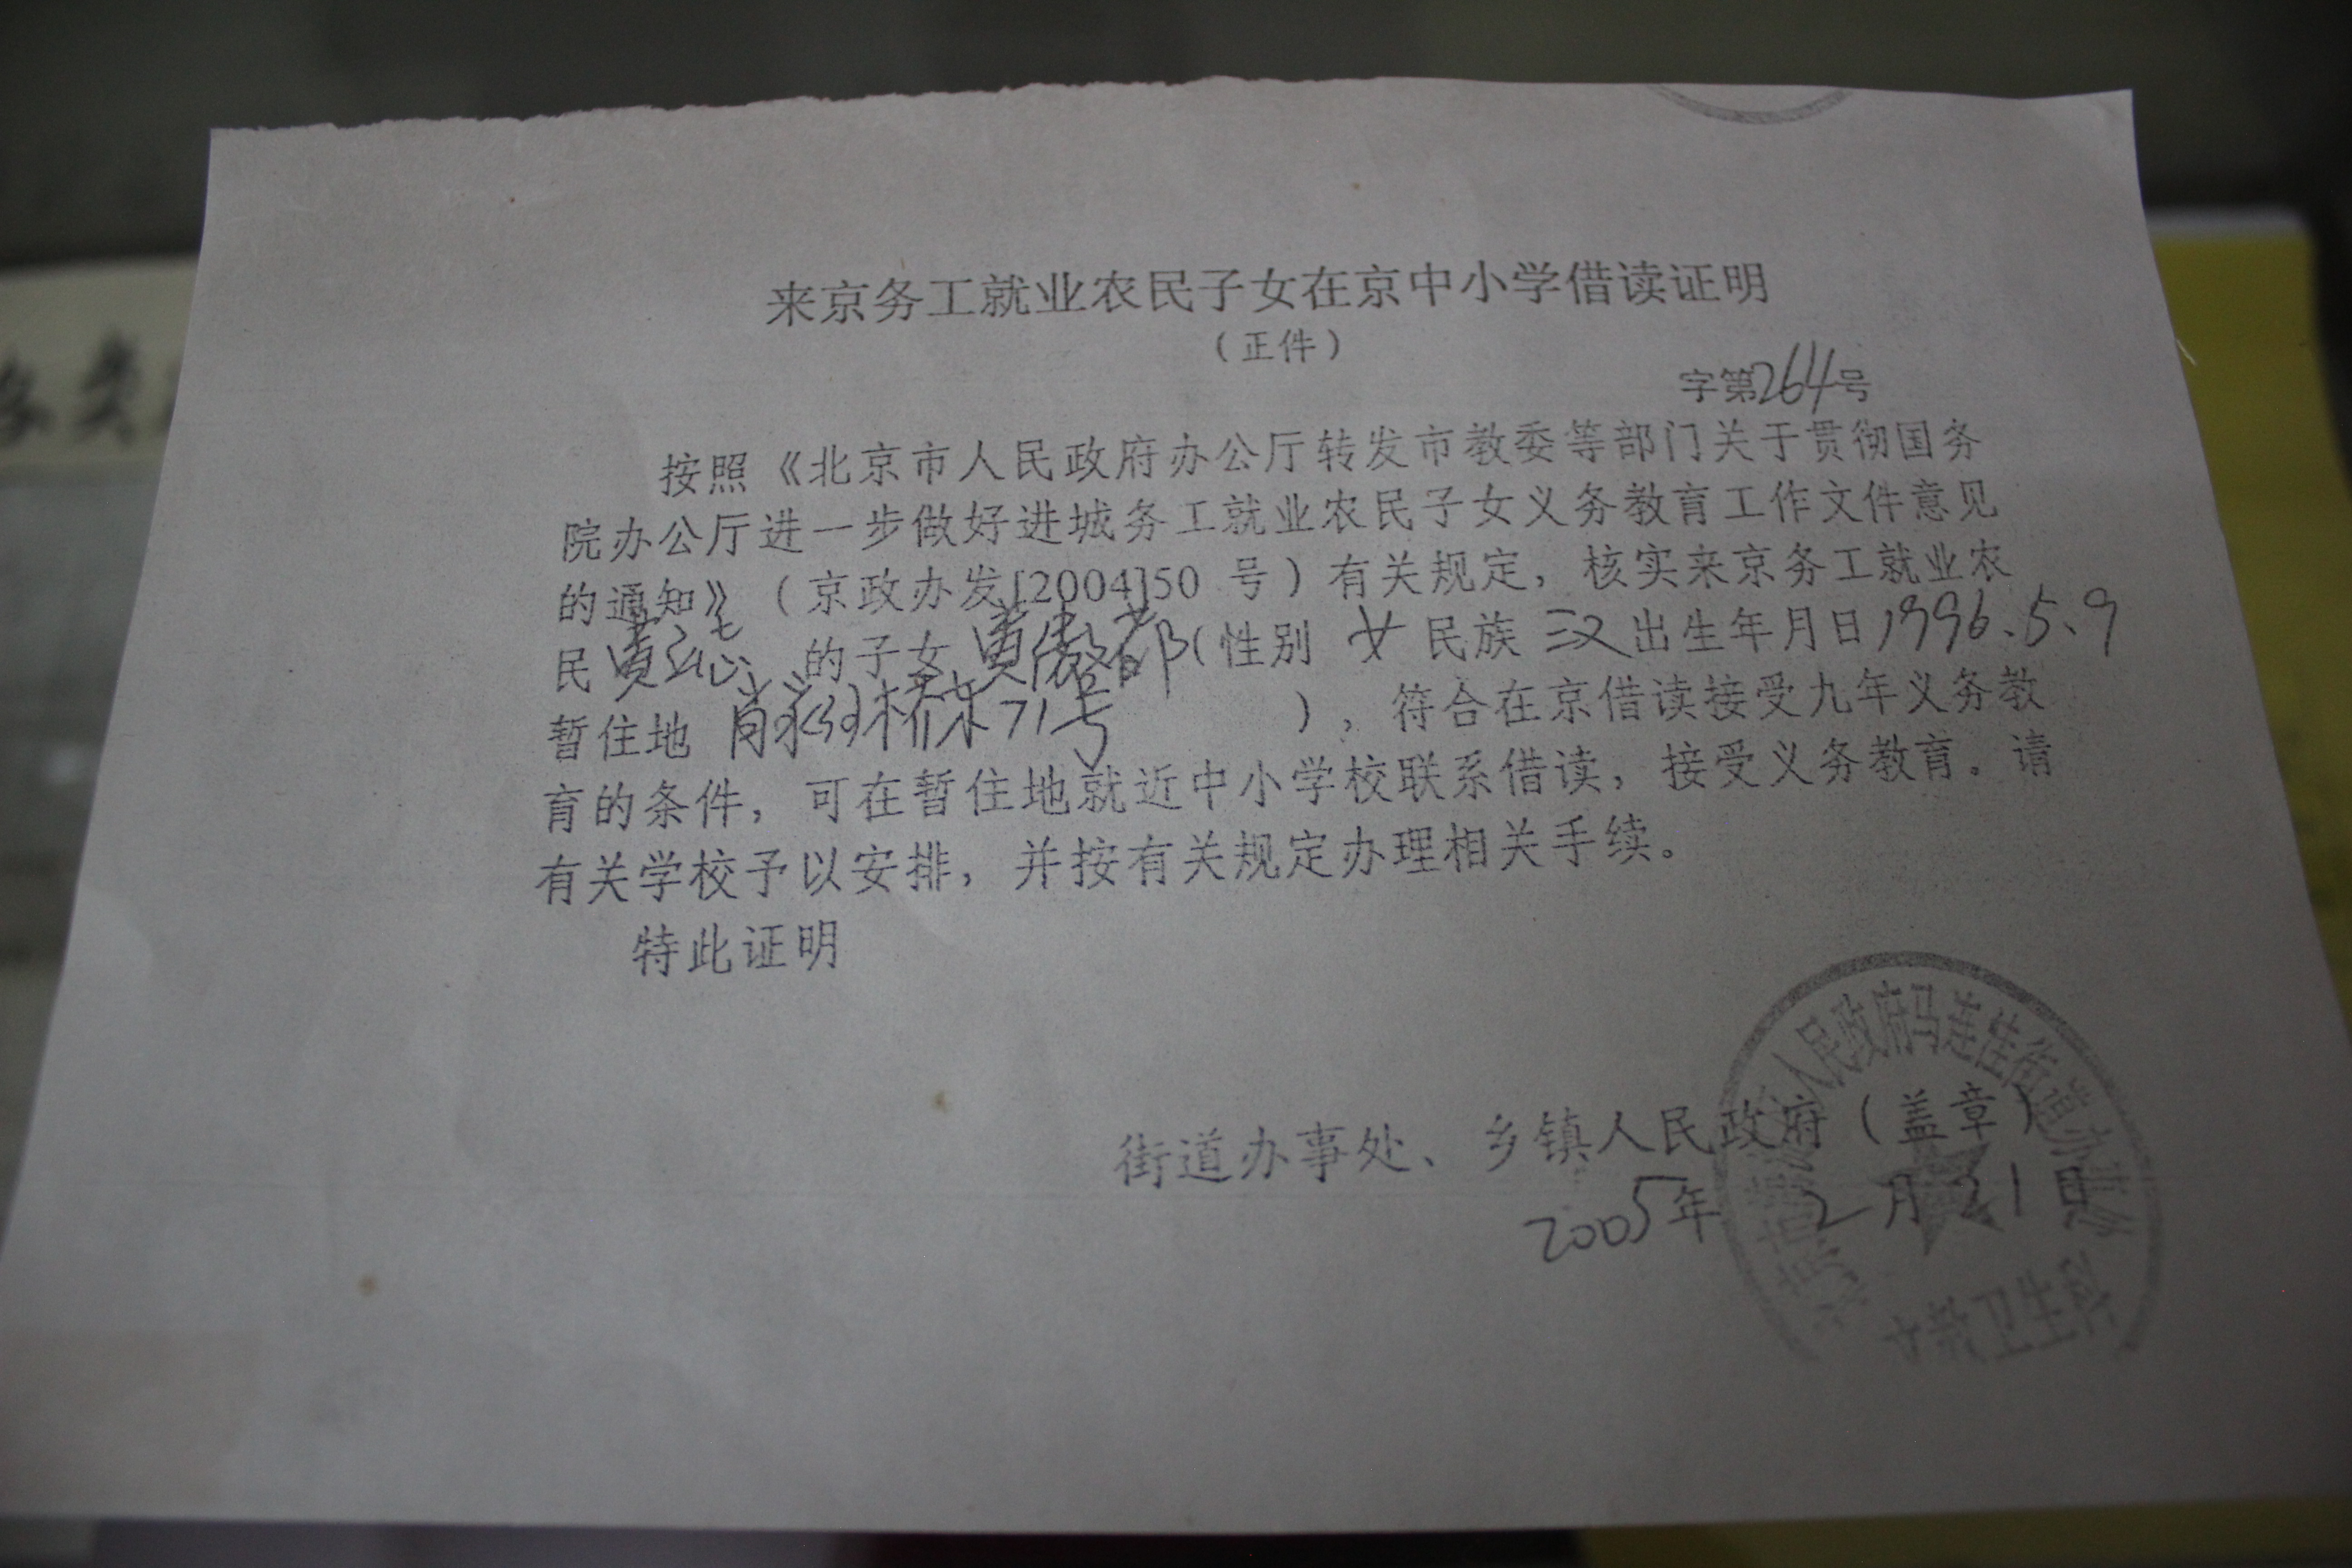 来京务工就业农民子女在京中小学借读证明
（正件）
字第264号
按照《北京市人民政府办公厅转发市教委等部门关于贯彻国务
院办公厅进一步做好进城务工就业农民子女义务教育工作文件意见
的通知》（京政办发[2004]50 号）有关规定，核实来京务工就业农
民 黄 的子女 黄 （性别 女 民族 汉 出生年月日1996.5.9
暂住地 肖家河桥东71号 ），符合在京借读接受九年义务教
育的条件，可在暂住地就近中小学校联系借读，接受义务教育。请
有关学校予以安排，并按有关规定办理相关手续。
特此证明
街道办事处、乡镇人民政府（盖章）
2005年 2月21日
人民政府马连洼街道办事处
文教卫生科